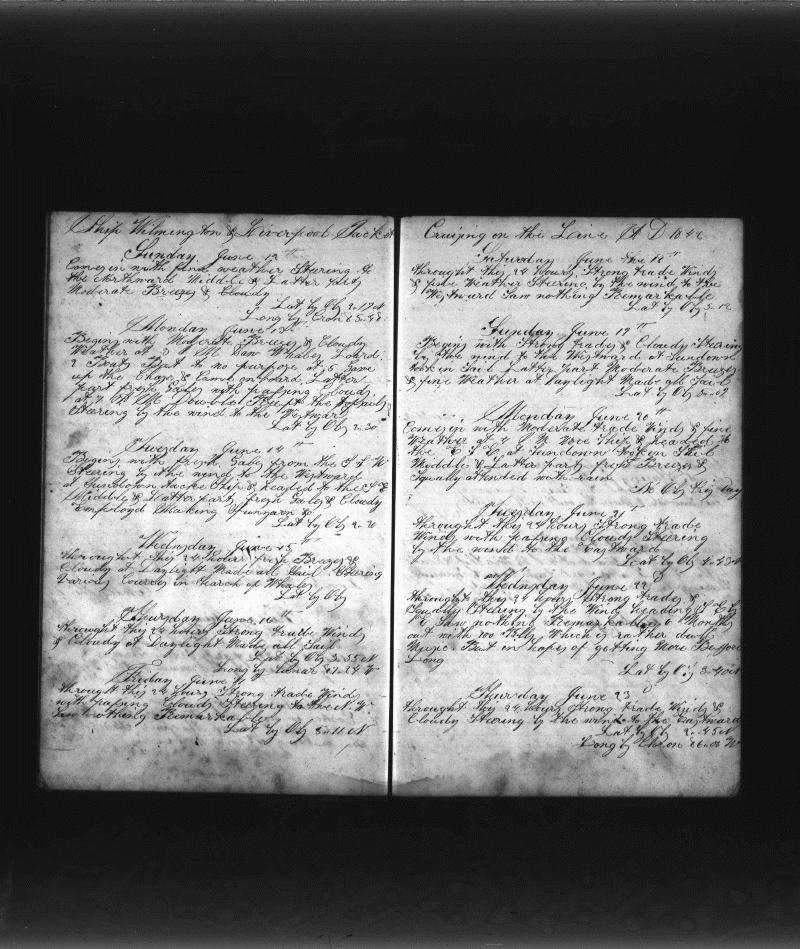 Ship Wilmington & Liverpool Packet
Sunday June 12th
Comes in with fine weather Steering to
the Northward Middle & Latter part
Moderate Breezes & Cloudy
Lat by Ob 2-17
Long by Cron
Monday June 13th
Begins with Moderate Breezes & Cloudy
Weather at 3 PM Saw Whales Lowrd
2 Boats But to no purpose at 6 Gave
up the Chase & Came on board Latter
part fresh Gales with passing Clouds
at 7 AM
Steering by the wind to the Westward
Lat by Ob 2-30
Tuesday June 14th
Begins with fresh Gales from the
Steering by the wind to the Westward
at Sundown tacked Ship & headed to the
Middle & Latter part fresh Gales & Cloudy
Employd Making Spunyarn &
Lat by Ob 2-20
Wednsday June 15th
throught this 24 hours fresh Breezes &
Cloudy at Daylight Made all Sail Steering
Various Courses in Search of Whales
Lat by Ob
Thursday June 16th
throught this 24 hours Strong trade Winds
& Cloudy at Daylight Made all Sail
Lat by Ob 3-55 N
Long by Lunar
Friday June 17
throught this 24 hours Strong trade Winds
with passing Clouds Steering to the N W
Saw nothing Remarkable
Lat by Ob 5-11 N
Cruizing on the Line A D 1842
Saturday June the 18th
throught this 24 hours Strong trade Winds
& fine Weather Steering by the wind to the
Westward Saw nothing Remarkable
Lat by Ob 5-12
Sunday June 19th
Begins with Strong trades & Cloudy Steering
by the wind to the Westward at Sundown
took in Sail Latter part Moderate Breezes
& fine Weather at Daylight Made all Sail
Lat by Ob 5-02
Monday June 20th
Comes in with Moderate trade Winds & fine
Weather at 4 P M Wore Ship & headed to
the E S E at Sundown took in Sail
Middle & Latter part fresh Breezes &
Squally attended with rain
No Ob this day
Tuesday June 21st
throught this 24 hours Strong trade
Winds with passing Clouds Steering
by the wind to the Eastward
Lat by Ob 4-43 N
Wednsday June 22
throught this 24 hours Strong trades &
Cloudy Steering by the Wind heading S E by
E Saw nothing Remarkable 6 Months
out with 100 Bbls Which is rather dull
Music But in hopes of getting More Before
Long
Lat by Ob 3-40 N
Thursday June 23
throught this 24 hours Strong trade Winds &
Cloudy Steering by the wind to the Eastward
Lat by Ob 2-45 N
Long by Chron 26-00 W